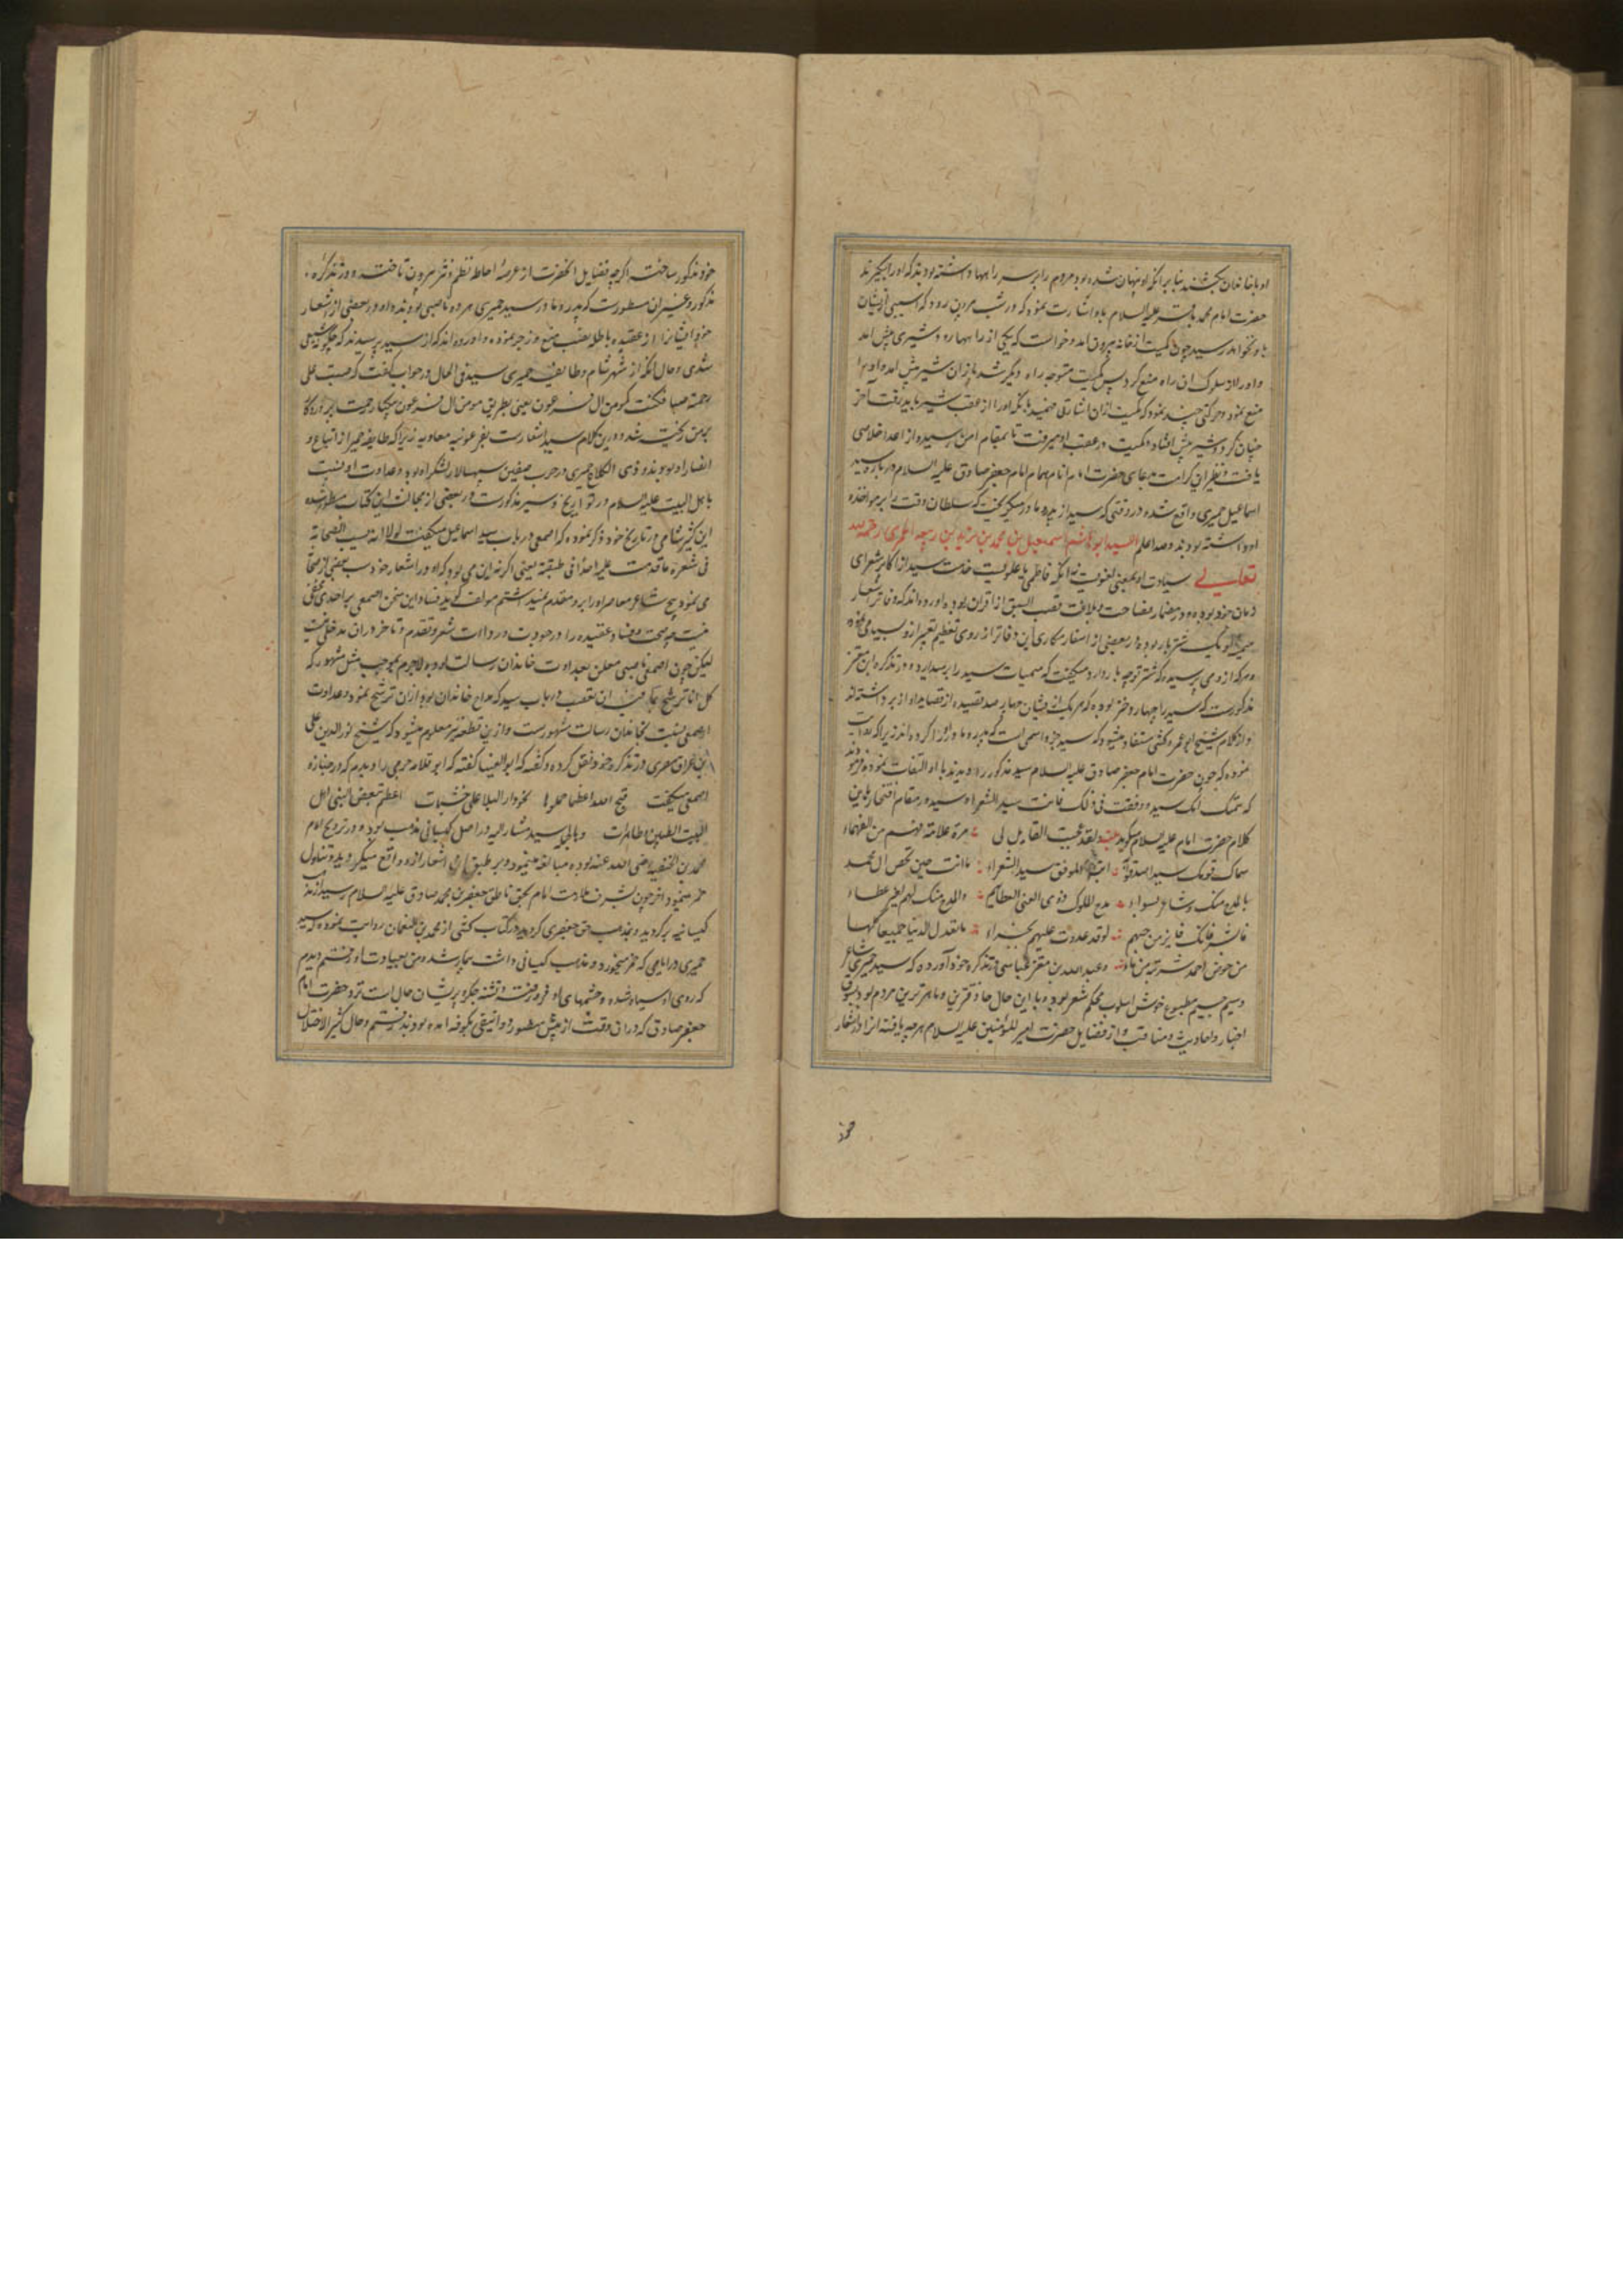 حضرت امام محمد باقر علیه السلام باو اشارت نموده که در شب بیرون رود که آسیبی از ایشان
باو نخواهد رسید چون کمیت از خانه بیرون آمد و خواست که یکی از راهها رود شیری پیش آمد
و او را از سلوک آن راه منع کرد پس کمیت متوجه راه دیگر شد باز آن شیر پیش آمد و او را
منع نمود و حرکتی چند نمود که کمیت ازان اشارتی فهمید بآنکه او را از عقب شیر باید رفت آخر
چنان کرد و شیر پیش افتاد و کمیت در عقب او میرفت تا بمقام امن رسید و از اعدا خلاصی
یافت و نظیر این کرامت بدعای حضرت امام انام همام امام جعفر صادق علیه السلام درباره سید
اسماعیل حمیری واقع شده در وقتی که سید از پدر و مادر میگریخت که سلطان وقت را بر مواخذه
او داشته بودند والله اعلم السید ابو هاشم اسمعیل بن محمد بن یزید بن ربیعه الحمیری رحمه الله
تعالی سیادت او بمعنی لغویست نه آنکه فاطمی یا علویست خدمت سید از اکابر شعرای
زمان خود بوده و در مضمار فصاحت و بلاغت قصب السبق از اقران ربوده آورده اند که دفاتر اشعار
حمیری یک شتر بار بوده و در بعضی از اسفار مکاری این دفاتر از روی تعظیم تعبیر ازو بسید می نموده
و هر که از وی پرسیده که شتر تو چه بار دارد میگفت که میمیات سید را بر میدارد و در تذکره ابن معتز
مذکورست که سید را چهار دختر بوده که هر یک از ایشان چهار صد قصیده از قصاید او از بر داشته اند
و از کلام شیخ ابو عمرو کشی مستفاد میشود که سید جزو اسمی است که پدر و مادر او را کرده اند زیرا که روایت
نموده که چون حضرت امام جعفر صادق علیه السلام سید مذکور را دیدند با او التفات نموده فرمودند
که سمتک امک سیدا و وفقت فی ذلک فانت سید الشعراء و سید در مقام افتخار باین
کلام حضرت امام علیه السلام میگوید ولقد عجبت لقایل لی مرة علامة فهم من الفقهاء
سماک قومک سیدا صدقوا به انت الموفق سید الشعراء ما انت حین تخص آل محمد
بالمدح منک و شاعر بسواء مدح الملوک ذوی الغنی لعطائهم والمدح منک لهم لغیر عطاء
فابشر فانک فایز من حبهم لو قد غدوت علیهم بجزاء ما تعدل الدنیا جمیعا کلها
من حوض احمد شربة من ماء و عبدالله بن معتز عباسی در تذکره خود آورده که سید حمیری شاعر
وسیم جسیم مطبوع خوش اسلوب محکم شعر بود و با این حال حاذقترین و ماهرترین مردم بود بسوق
اخبار و احادیث و مناقب و از فضایل حضرت امیر المؤمنین علیه السلام هر چه یافته آنرا در اشعار
خود
خود مذکور ساخته اگر چه فضایل آنحضرت از عرصه احاطه نظم و نثر بیرون تاخته و در تذکره
مذکور و غیر آن مسطورست که پدر و مادر سید حمیری هر دو ناصبی بودند و او در بعضی از اشعار
خود ایشانرا از عقیده باطله نصب منع و زجر نموده و آورده اند که از سید پرسیدند که چگونه شیعی
شدی و حال آنکه از شهر شام و طایفه حمیری سید فی الحال در جواب گفت که صبت علی
رحمة صبا فکنت کمومن آل فرعون یعنی بطریق مومن آل فرعون بیکبار رحمت پروردگار
بر من ریخته شد و درین کلام سید اشعارست بفرعونیه معاویه زیرا که طایفه حمیر از اتباع و
انصار او بودند و ذی الکلاع حمیری در حرب صفین سپهسالار لشکر او بود و عداوت او نسبت
باهل البیت علیهم السلام در تواریخ و سیر مذکورست و در بعضی از مجالس این کتاب مسطور شده
ابن کثیر شامی در تاریخ خود ذکر نموده که اصمعی در باب سید اسماعیل میگفت لولا انه یسب الصحابة
فی شعره ما قدمت علیه احدا فی طبقته یعنی اگر نه این می بود که او در اشعار خود سب بعضی از صحابه
می نمود هیچ شاعر معاصر او را برو مقدم نمیداشتم مولف گوید فساد این سخن اصمعی بر احدی مخفی
نیست چه صحت و فساد عقیده را در جودت و رداءت شعر و تقدم و تاخر در آن مدخلی نیست
لیکن چون اصمعی ناصبی معلن بعداوت خاندان رسالت بوده لاجرم بموجب مثل مشهور که
کل اناء یترشح بما فیه این تعصب در باب سید که مداح خاندان بود ازان ترشح نموده و عداوت
اصمعی نسبت بخاندان رسالت مشهورست و ازین قطعه نیز معلوم میشود که شیخ نور الدین علی
بن عراق مصری در تذکره خود نقل کرده و گفته که ابو العینا گفته که ابو قلابه جرمی را دیدم که در جنازه
اصمعی میگفت قبح الله اعظما حملوها نحو دار البلا علی خشبات اعظم تبغض النبی و اهل
البیت الطیبین و الطاهرات و بالجمله سید مشار الیه در اصل کیسانی مذهب بود و در ترویج امام
محمد بن الحنفیه رضی الله عنه بوده مبالغه مینمود و بر طبق آن اشعار ازو واقع میگردید و تناول
خمر مینمود و آخر چون بشرف ملازمت امام بحق ناطق جعفر بن محمد صادق علیه السلام رسید از مذهب
کیسانیه برگردید و بمذهب حق جعفری گروید در کتاب کشی از محمد بن نعمان روایت نموده که سید
حمیری در ایامی که خمر میخورد و مذهب کیسانی داشت بیمار شد و من بعیادت او رفتم دیدم
که روی او سیاه شده و چشمهای او فرو رفته و تشنه جگر و پریشان حال است نزد حضرت امام
جعفر صادق که در آن وقت از پیش منصور دوانیقی بکوفه آمده بودند رفتم و حال کثیر الاختلال